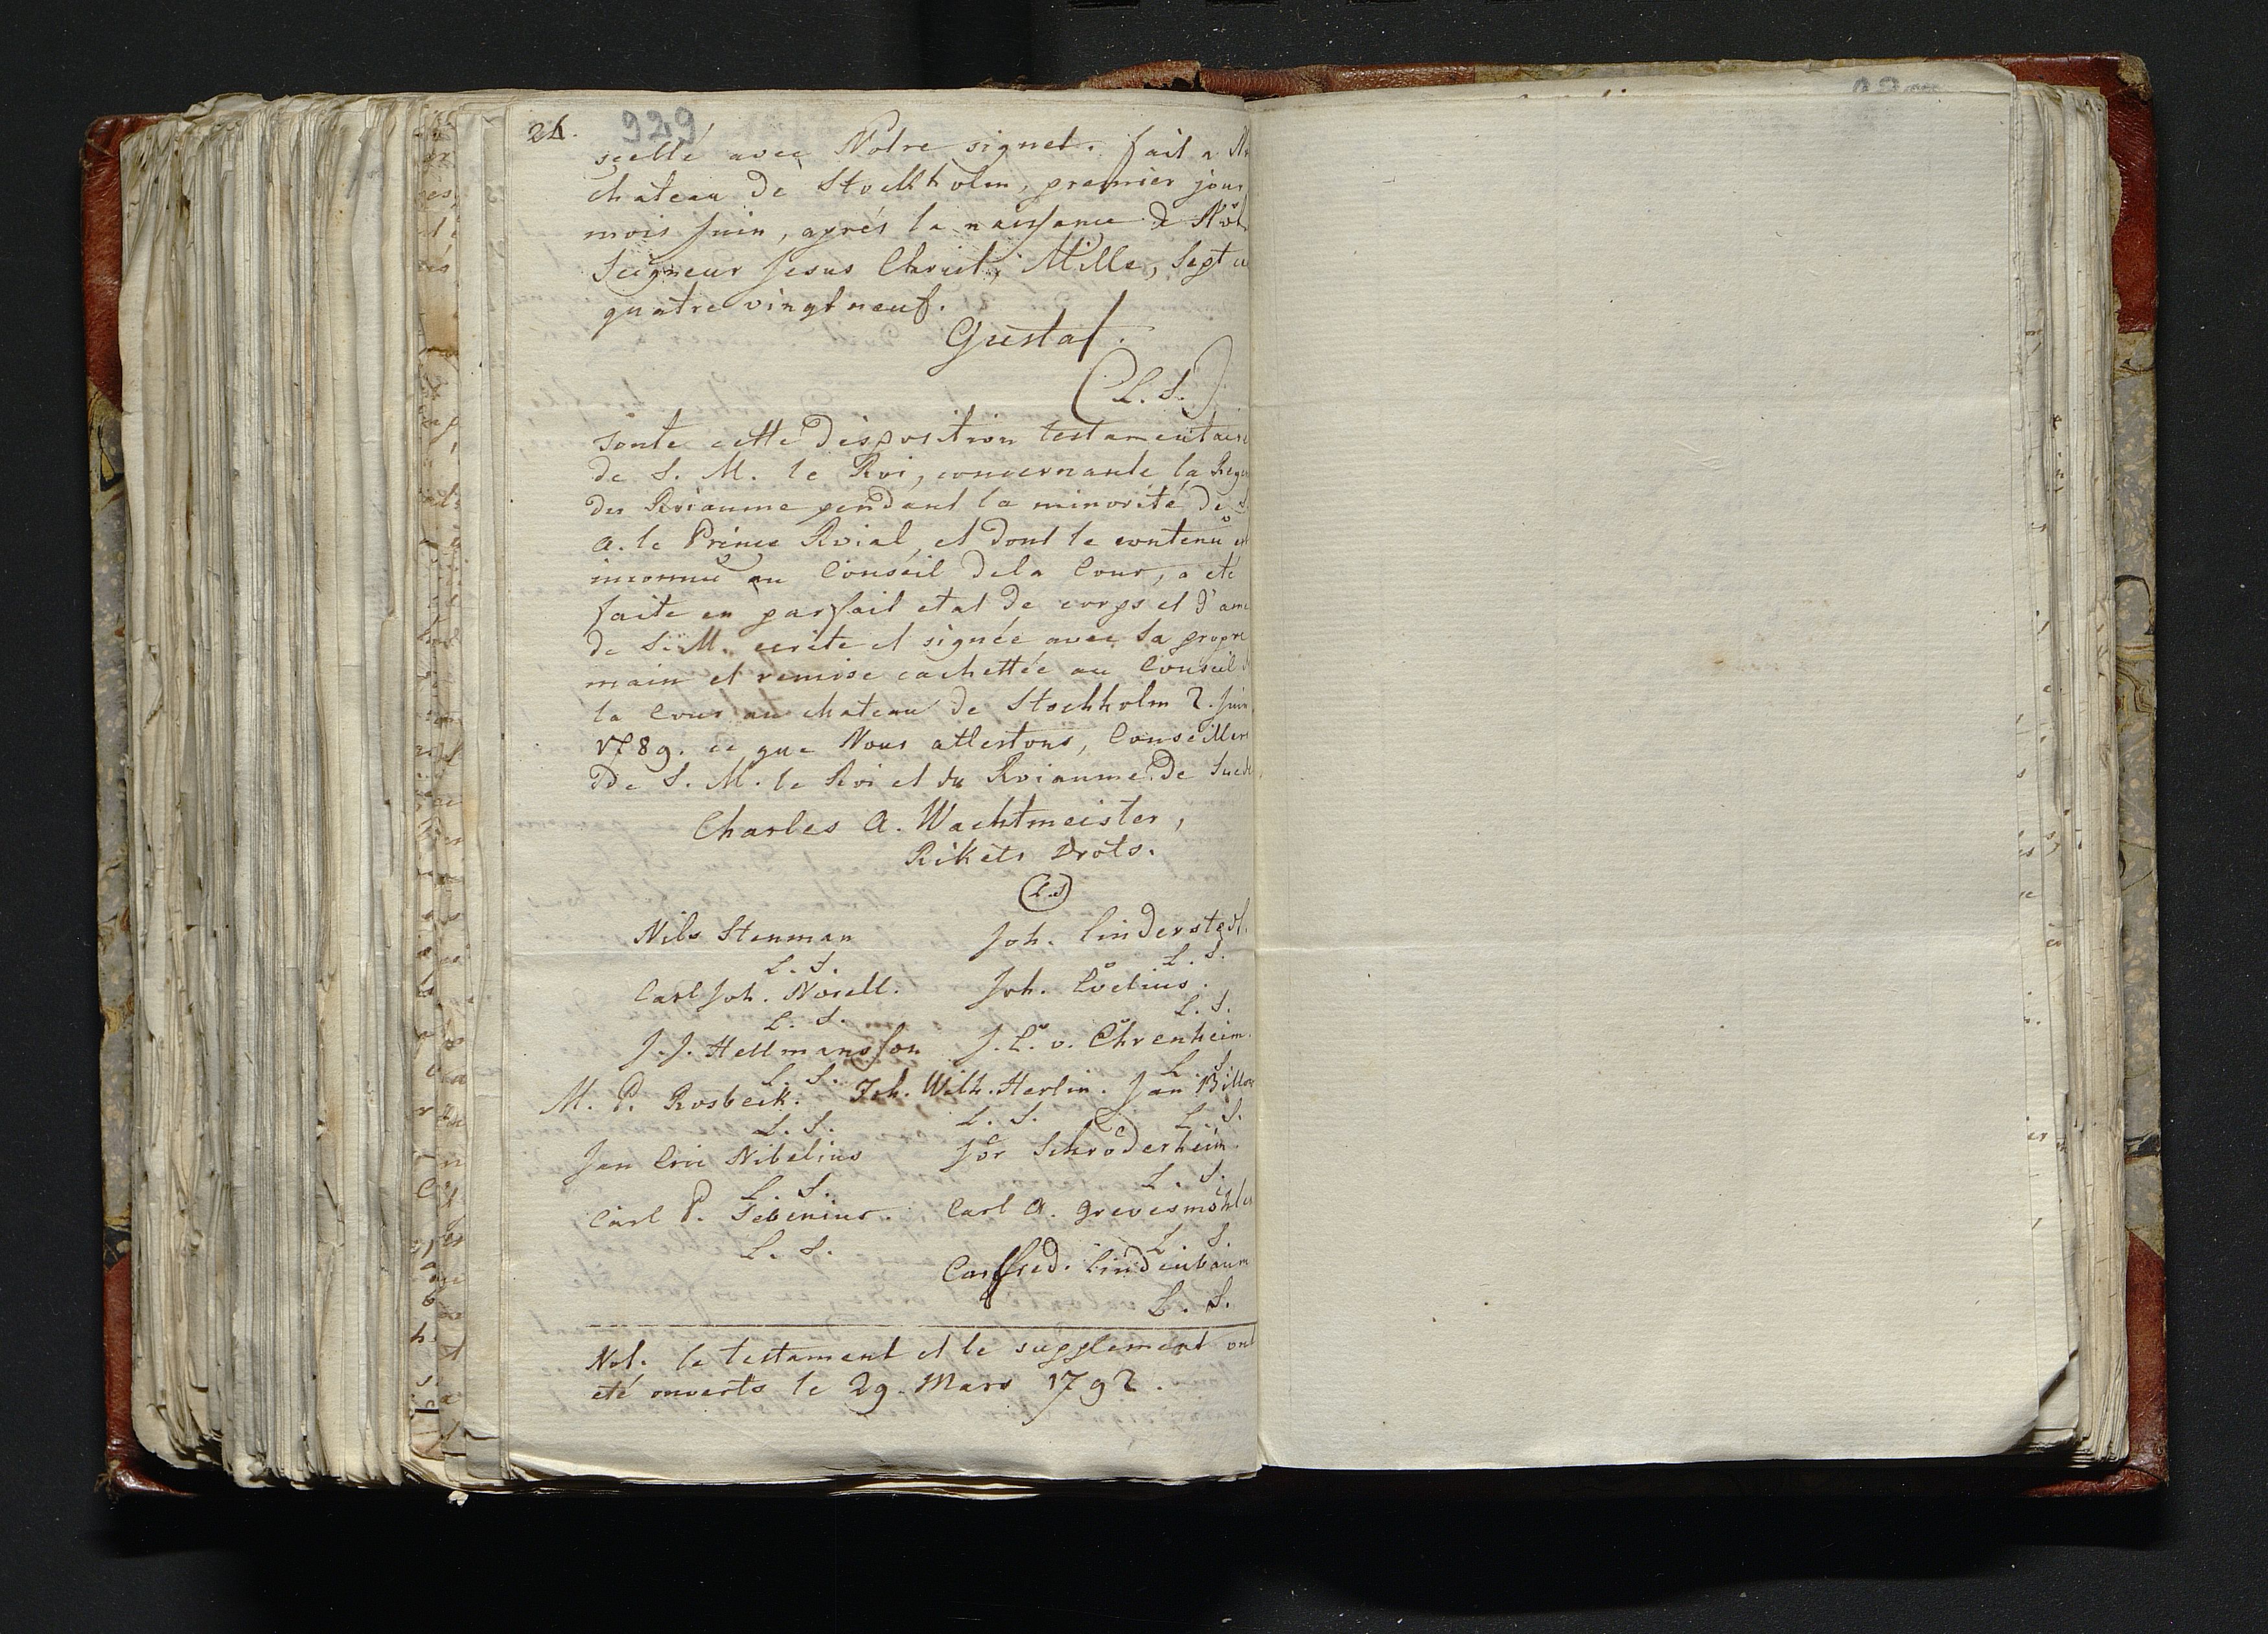 24. 929
scellé avec Notre signet. fait a
chateau de Stockholm, premier jour
mois Juin, aprés la naissance de
Seigneur Jesus Christ, Mille, Sept
quatre vingt neuf.
Gustaf.
(L. S.)
cette disposition testamentaire
de S. M. le Roi, concernante la
du Roiaume pendant la minorité de
A. le Prince Roial, et dont le contenu
inconnu au Conseil de la Cour, a eté
faite en parfait etat de corps et d'ame
de S. M. ecrite et signée avec Sa propre
main et remise cachettée au Conseil
la Cour au chateau de Stockholm 2. Juin
1789. ce que Nous attestons, Conseillers
de S. M. le Roi et du Roiaume de Suede
Charles A. Wachtmeister,
Rikets Drots.
(L.S)
Nils Stenman Joh. Linderstedt.
L. S. L. S.
Carl Joh. Norell. Joh. Loelius.
L. S. L. S.
J. J. Hellmansson J. L. v. Ehrenheim.
L. S. L. S.
M. P. Rosbeck. Joh. Wilh. Herlin. Jan
L. S. L. S. L. S.
Jan Eric Nibelius Jör Schröderheim
L. S. L. S.
Carl P. Sebenius. Carl A. Grevesmöhlen
L. S. L. S.
Carl Fred. Lindenbaum
L. S.
Not. le testament et le supplement ont
eté ouverts le 29. Mars 1792.